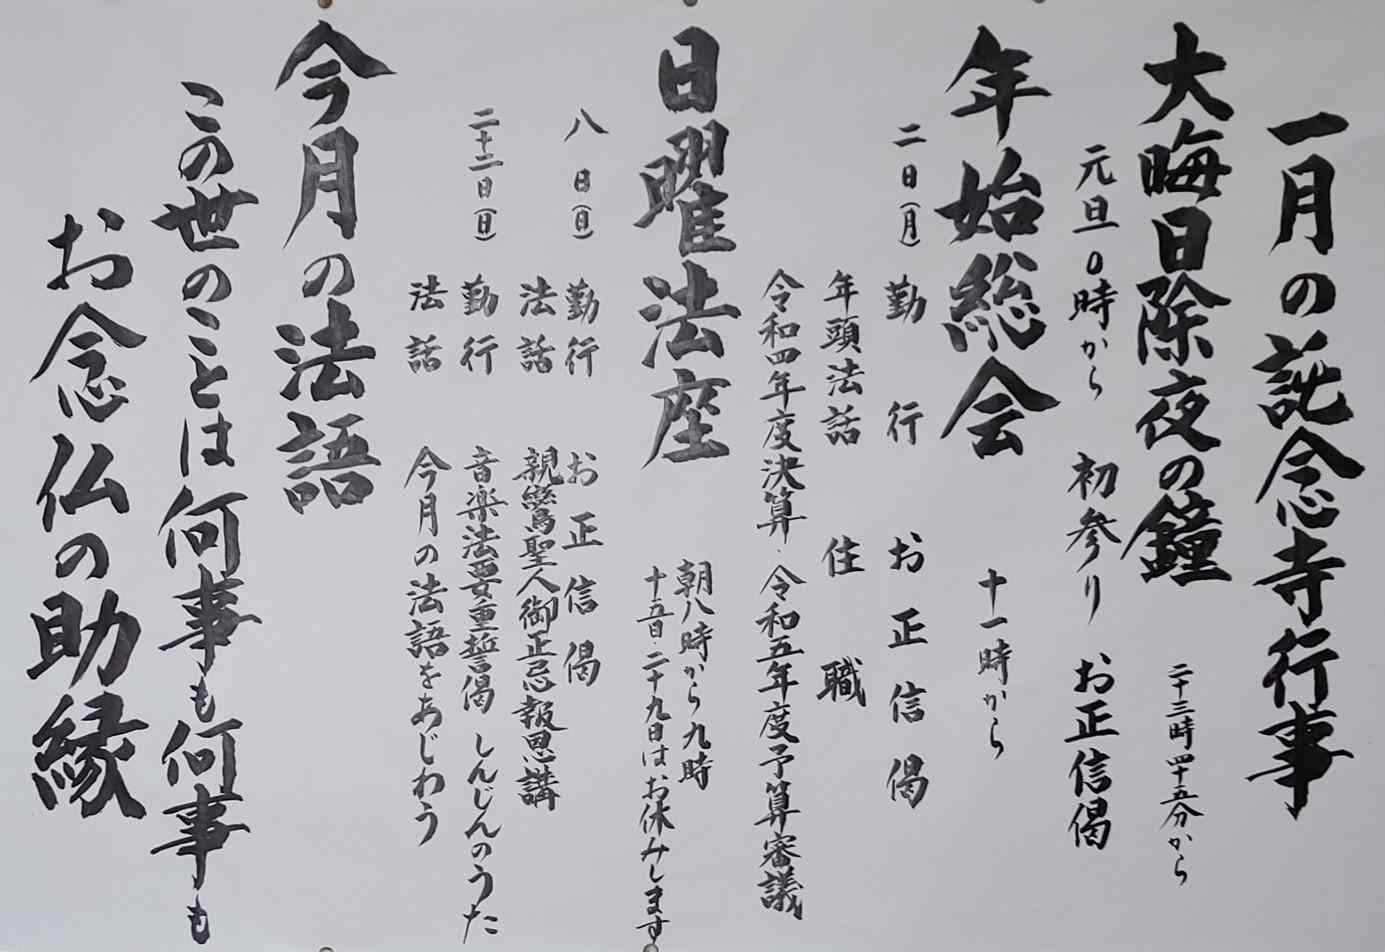 一月の託念寺行事
大晦日除夜の鐘 二十三時四十五分から
元旦0時から 初参り お正信偈
年始総会 十一時から
二日(月) 勤行 お正信偈
年頭法話 住職
令和四年度決算・令和五年度予算審議
日曜法座 朝八時から九時
十五日・二十九日はお休みします
八日(日) 勤行 お正信偈
法話 親鸞聖人御正忌報恩講
二十二日(日) 勤行 音楽法要重誓偈 しんじんのうた
法話 今月の法語をあじわう
今月の法語
この世のことは何事も何事も
お念仏の助縁